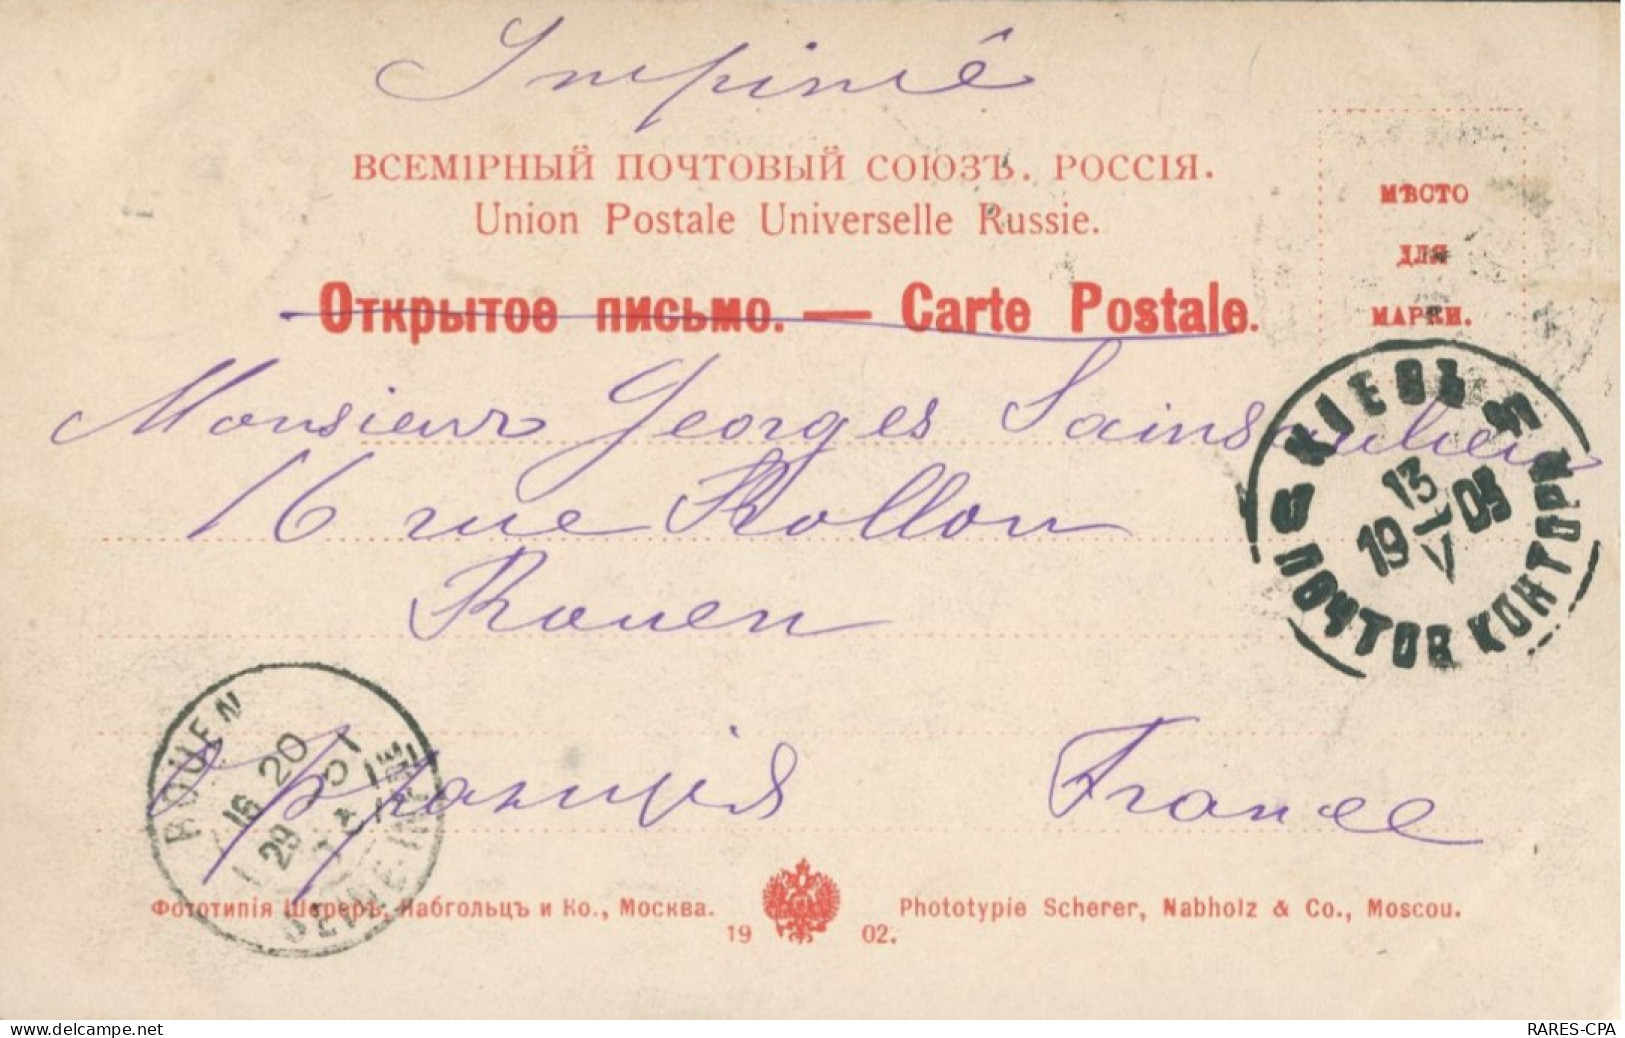 Imprimé
ВСЕМІРНЫЙ ПОЧТОВЫЙ СОЮЗЪ. РОССІЯ.
Union Postale Universelle Russie.
МѢСТО
ДЛЯ
МАРКИ.
Открытое письмо. — Carte Postale.
Monsieur Georges Sainsaulieu
16 rue Rollon
Rouen
КІЕВЪ
13
19 V 03
ПОЧТОВ КОНТОРА
Франція France
ROUEN
16 20
29
SEINE-INFRE
Фототипія Шереръ, Набгольцъ и Ко., Москва.
Phototypie Scherer, Nabholz & Co., Moscou.
19 02.
www.delcampe.net
RARES-CPA